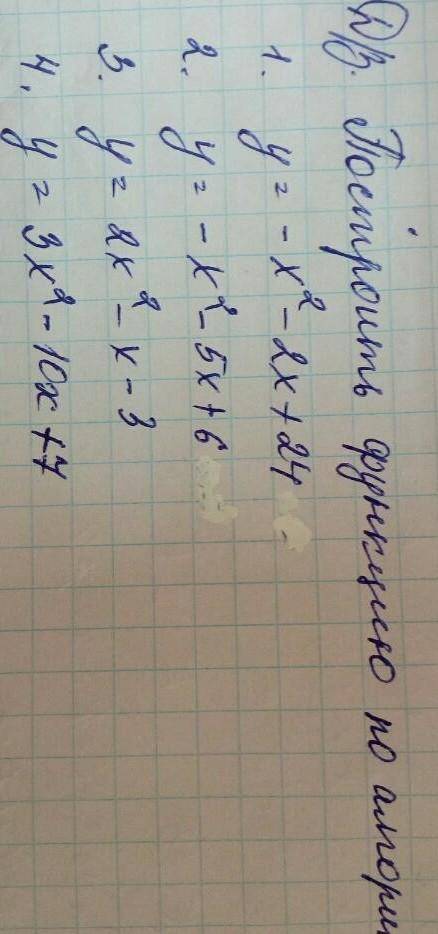 Д/З. Построить функцию по
1. y = -x² - 2x + 24
2. y = -x² - 5x + 6
3. y = 2x² - x - 3
4. y = 3x² - 10x + 7